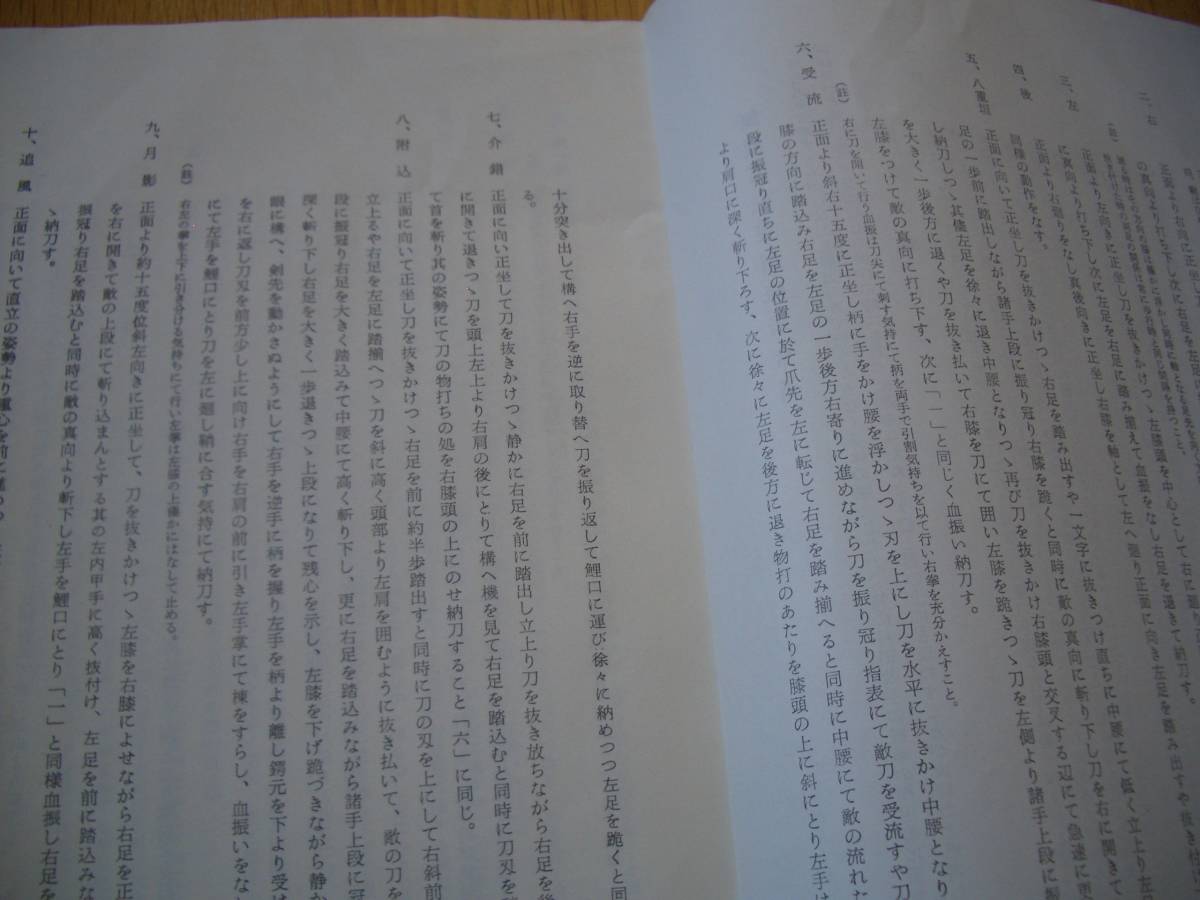 二、右
正面より右向に正
の真向より打ち下し次に右足を退きて納刀す。
三、左
正面より左向きに正坐し刀を抜きかけつゝ左膝頭を中心として右に
に真向より打下し次に左足を右足に踏み揃えて血振をなし右足を退きて納刀す。
四、後
正面より右廻りをなし真後向きに正坐し右膝を軸として左へ廻り正面に向き左足を踏み出すや抜き付
同様の動作をなす。
五、八重垣
正面に向いて正坐し刀を抜きかけつゝ右足を踏み出すや一文字に抜きつけ直ちに中腰にて低く立上り左
足の一歩前に踏出しながら諸手上段に振り冠り右膝を跪くと同時に敵の真向に斬り下し刀を右に開きて
し納刀しつゝ其儘左足を徐々に退き中腰となりつゝ再び刀を抜きかけ右膝頭と交叉する辺にて急速に
を大きく一歩後方に退くや刀を抜き払いて右膝を刀にて囲い左膝を跪きつゝ刀を左側より諸手上段に振
左膝をつけて敵の真向に打下す、次に「一」と同じく血振い納刀す。
(註)
右に刀を開いて行う血振は刀尖にて刺す気持にて柄を両手で引割気持ちを以て行い右拳を充分かえすこと。
六、受流
正面より斜右十五度に正坐し柄に手をかけ腰を浮かしつゝ刃を上にし刀を水平に抜きかけ中腰となり
膝の方向に踏込み右足を左足の一歩後方右寄りに進めながら刀を振り冠り指表にて敵刀を受流すや刀
段に振冠り直ちに左足の位置に於て爪先を左に転じて右足を踏み揃へると同時に中腰にて敵の流れた
より肩口に深く斬り下ろす、次に徐々に左足を後方に退き物打のあたりを膝頭の上に斜にとり左手は
十分突き出して構へ右手を逆に取り替へ刀を振り返して鯉口に運び徐々に納めつつ左足を跪くと同
る。
七、介錯
正面に向い正坐して刀を抜きかけつゝ静かに右足を前に踏出し立上り刀を抜き放ちながら右足を後
に開きて退きつゝ刀を頭上左上より右肩の後にとりて構へ機を見て右足を踏込むと同時に刀刃を
て首を斬り其の姿勢にて刀の物打ちの処を右膝頭の上にのせ納刀すること「六」に同じ。
八、附込
正面に向いて正坐し刀を抜きかけつゝ右足を前に約半歩踏出すと同時に刀の刃を上にして右斜前
立上るや右足を左足に踏揃へつゝ刀を斜に高く頭部より左肩を囲むように抜き払いて、敵の刀を
段に振冠り右足を大きく踏込みて中腰にて高く斬り下し、更に右足を踏込みながら諸手上段に冠
深く斬り下し右足を大きく一歩退きつゝ上段になりて残心を示し、左膝を下げ跪づきながら静か
眼に構へ、剣先を動かさぬようにして右手を逆手に柄を握り左手を柄より離し鍔元を下より受け
を右に返し刀刃を前方少し上に向け右手を右肩の前に引き左手掌にて棟をすらし、血振いをな
にて左手を鯉口にとり刀を左に廻し鞘に合す気持にて納刀す。
(註)
右左の拳を上下に引き分ける気持ちにて行い左拳は左膝の上僅かにはなして止める。
九、月影
正面より約十五度位斜左向きに正坐して、刀を抜きかけつゝ左膝を右膝によせながら右足を正
を右に開きて敵の上段にて斬り込まんとする其の左内甲手に高く抜付け、左足を前に踏込みな
振冠り右足を踏込むと同時に敵の真向より斬下し左手を鯉口にとり「一」と同様血振し右足を
ゝ納刀す。
十、追風
正面に向いて直立の姿勢より重心を前に